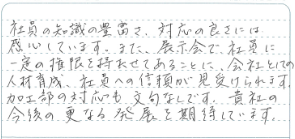 社員の知識の豊富さ、対応の良さには
感心しています。また、展示会で社員に
一定の権限を持たせてあることに、会社としての
人材育成、社員への信頼が見受けられます。
加工部の対応も文句なしです。貴社の
今後の更なる発展を期待しています。